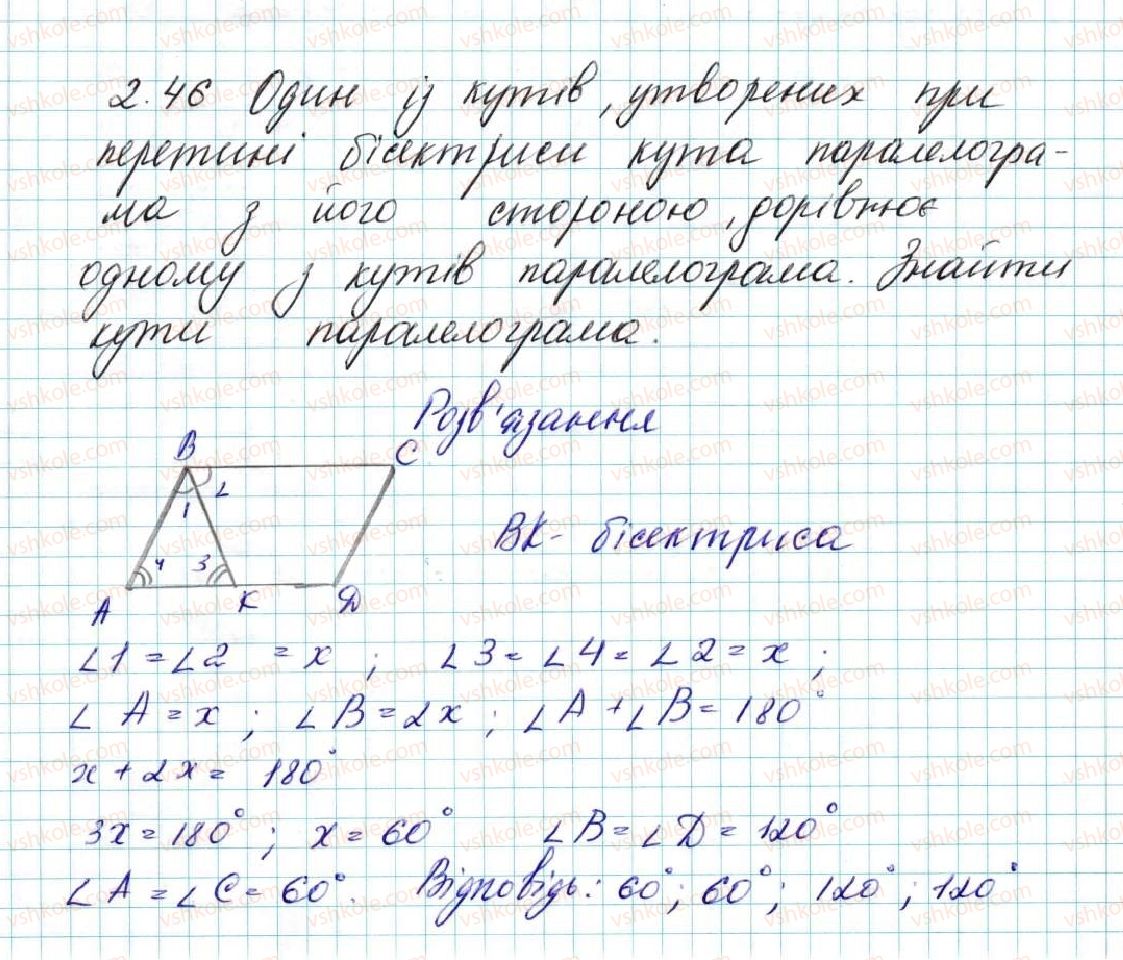 2.46 Один із кутів, утворених при
перетині бісектриси кута паралелогра-
ма з його стороною, дорівнює
одному з кутів паралелограма. Знайти
кути паралелограма.
Розв'язання
B C
1 2
4 3
A K D
BK - бісектриса
∠1 = ∠2 = x ; ∠3 = ∠4 = ∠2 = x ;
∠A = x ; ∠B = 2x ; ∠A + ∠B = 180°
x + 2x = 180°
3x = 180° ; x = 60° ∠B = ∠D = 120°
∠A = ∠C = 60°. Відповідь: 60°; 60°; 120°; 120°